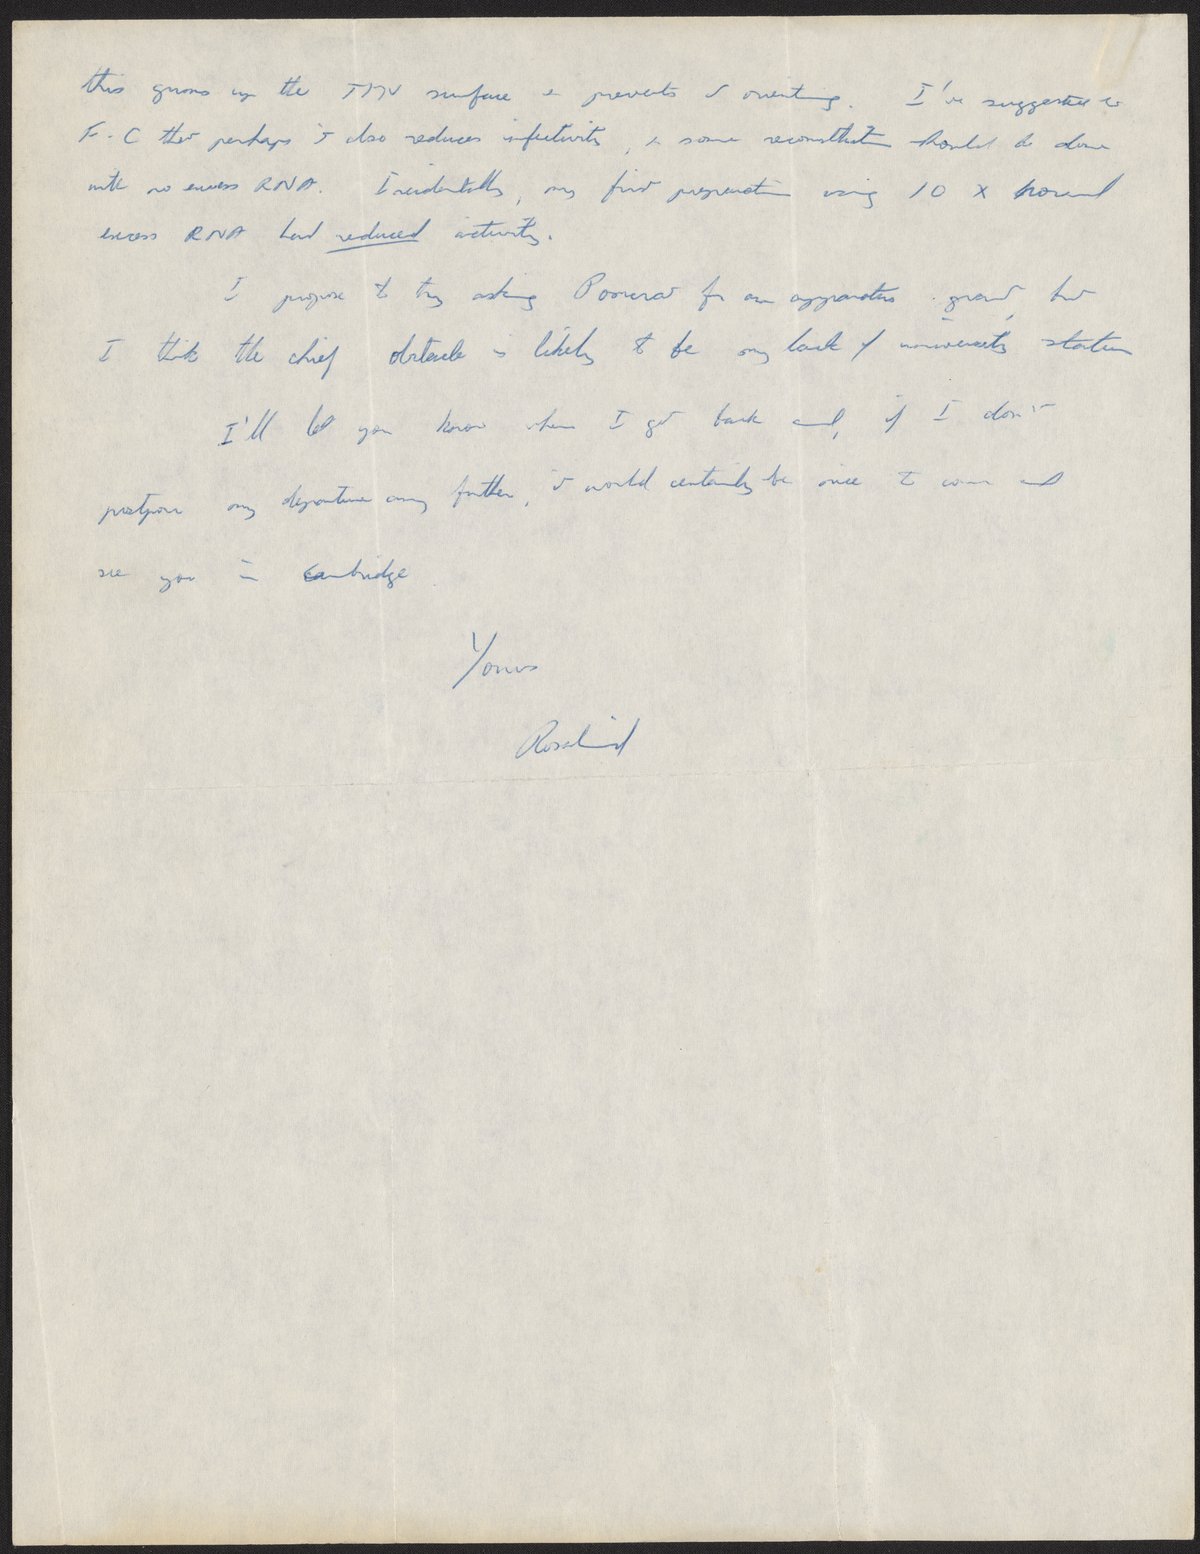 this gums up the TMV surface & prevents it orienting. I've suggested to
F-C that perhaps it also reduces infectivity, & some reconstitution should be done
with no excess RNA. Incidentally, my first preparation using 10 x normal
excess RNA had reduced activity.
I propose to try asking Pomerat for an apparatus grant, but
I think the chief obstacle is likely to be my lack of university status
I'll let you know when I get back and, if I don't
postpone my departure any further, it would certainly be nice to come and
see you in Cambridge
Yours
Rosalind